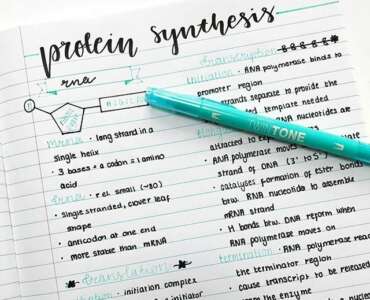 protein synthesis
rna
mrna • long strand in a
single helix
• 3 bases = a codon = 1 amino
acid
trna • rel. small (~80)
• single stranded, clover leaf
shape
• anticodon at one end
• more stable than mRNA
translation
initiation complex
transcription
initiation • RNA polymerase binds to
promoter region
strands separate to provide the
template needed
RNA nucleotides are
attracted to
TONE
RNA polymerase moves
strand of DNA (3' to 5')
• catalyses formation of ester bonds
btw. RNA nucleotides to assemble
mRNA strand
• H bonds btw. DNA reform when
RNA polymerase moves on
termination • RNA polymerase
the terminator region
• cause transcript to be released